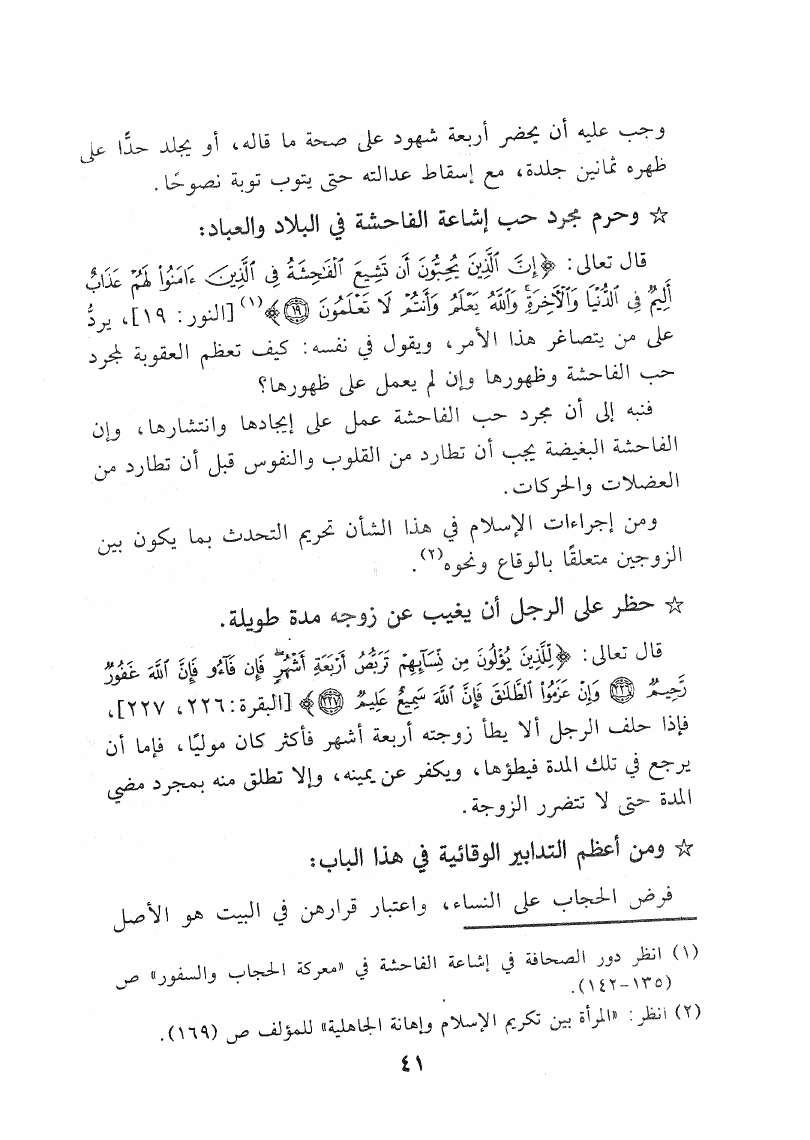 وجب عليه أن يحضر أربعة شهود على صحة ما قاله، أو يجلد حدًّا على
ظهره ثمانين جلدة، مع إسقاط عدالته حتى يتوب توبة نصوحًا.
☆ وحرم مجرد حب إشاعة الفاحشة في البلاد والعباد:
قال تعالى: ﴿إِنَّ ٱلَّذِينَ يُحِبُّونَ أَن تَشِيعَ ٱلْفَٰحِشَةُ فِى ٱلَّذِينَ ءَامَنُوا۟ لَهُمْ عَذَابٌ
أَلِيمٌ فِى ٱلدُّنْيَا وَٱلْءَاخِرَةِ ۚ وَٱللَّهُ يَعْلَمُ وَأَنتُمْ لَا تَعْلَمُونَ ١٩﴾(١) [النور: ١٩]، يردُّ
على من يتصاغر هذا الأمر، ويقول في نفسه: كيف تعظم العقوبة لمجرد
حب الفاحشة وظهورها وإن لم يعمل على ظهورها؟
فنبه إلى أن مجرد حب الفاحشة عمل على إيجادها وانتشارها، وإن
الفاحشة البغيضة يجب أن تطارد من القلوب والنفوس قبل أن تطارد من
العضلات والحركات.
ومن إجراءات الإسلام في هذا الشأن تحريم التحدث بما يكون بين
الزوجين متعلقًا بالوقاع ونحوه(٢).
☆ حظر على الرجل أن يغيب عن زوجه مدة طويلة.
قال تعالى: ﴿لِّلَّذِينَ يُؤْلُونَ مِن نِّسَآئِهِمْ تَرَبُّصُ أَرْبَعَةِ أَشْهُرٍ ۖ فَإِن فَآءُو فَإِنَّ ٱللَّهَ غَفُورٌ
رَّحِيمٌ ٢٢٦ وَإِنْ عَزَمُوا۟ ٱلطَّلَٰقَ فَإِنَّ ٱللَّهَ سَمِيعٌ عَلِيمٌ ٢٢٧﴾ [البقرة: ٢٢٦، ٢٢٧]،
فإذا حلف الرجل ألا يطأ زوجته أربعة أشهر فأكثر كان موليًا، فإما أن
يرجع في تلك المدة فيطؤها، ويكفر عن يمينه، وإلا تطلق منه بمجرد مضي
المدة حتى لا تتضرر الزوجة.
☆ ومن أعظم التدابير الوقائية في هذا الباب:
فرض الحجاب على النساء، واعتبار قرارهن في البيت هو الأصل
(١) انظر دور الصحافة في إشاعة الفاحشة في «معركة الحجاب والسفور» ص
(١٣٥-١٤٢).
(٢) انظر: «المرأة بين تكريم الإسلام وإهانة الجاهلية» للمؤلف ص (١٦٩).
٤١